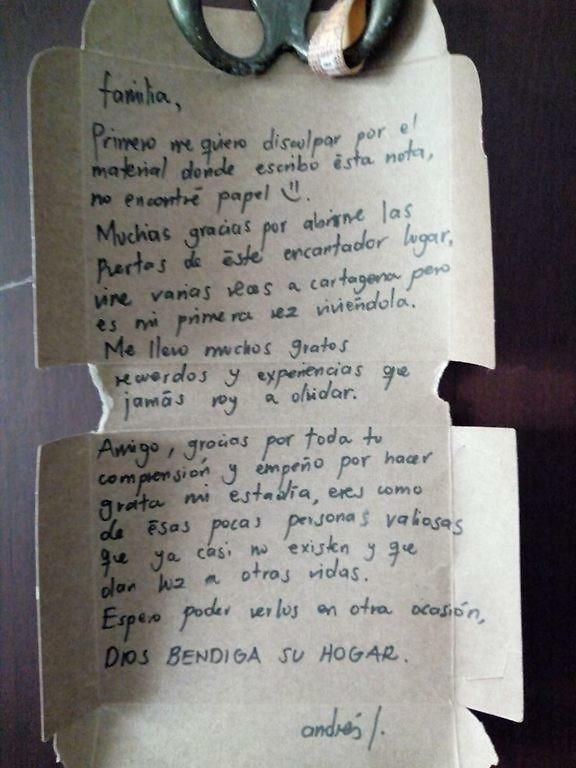 familia,
Primero me quiero disculpar por el
material donde escribo ésta nota,
no encontré papel
Muchas gracias por abrirme las
puertas de éste encantador lugar,
vine varias veces a cartagena pero
es mi primera vez viviéndola.
Me llevo muchos gratos
recuerdos y experiencias que
jamás voy a olvidar.
Amigo, gracias por toda tu
comprensión y empeño por hacer
grata mi estadía, eres como
de ésas pocas personas valiosas
que ya casi no existen y que
dan luz a otras vidas.
Espero poder verlos en otra ocasión,
DIOS BENDIGA SU HOGAR.
andrés/.